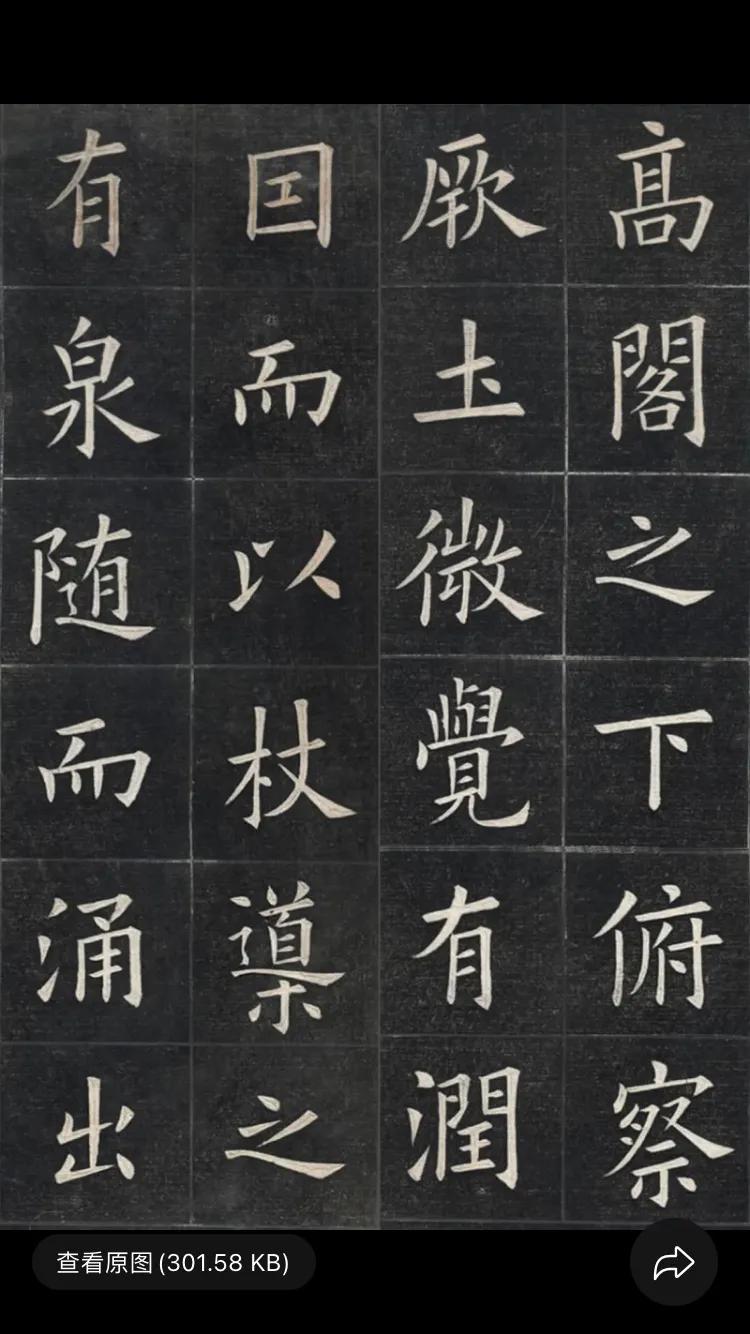 高閣之下俯察
厥土微覺有潤
囯而以杖導之
有泉随而涌出
查看原图(301.58 KB)